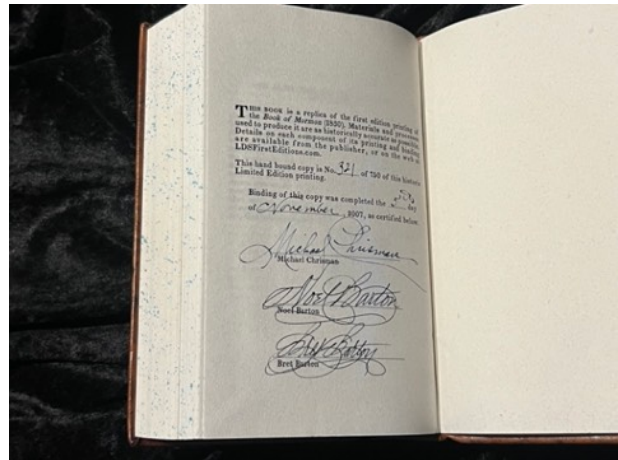 THIS BOOK is a replica of the first edition printing of
the Book of Mormon (1830). Materials and processes
used to produce it are as historically accurate as possible.
Details on each component of its printing and binding
are available from the publisher, or on the web at
LDSFirstEditions.com.
This hand bound copy is No. 321 of 750 of this historic
Limited Edition printing.
Binding of this copy was completed the day
of November, 2007, as certified below:
Michael Chrisman
Michael Chrisman
Noel Barton
Noel Barton
Bret Barton
Bret Barton